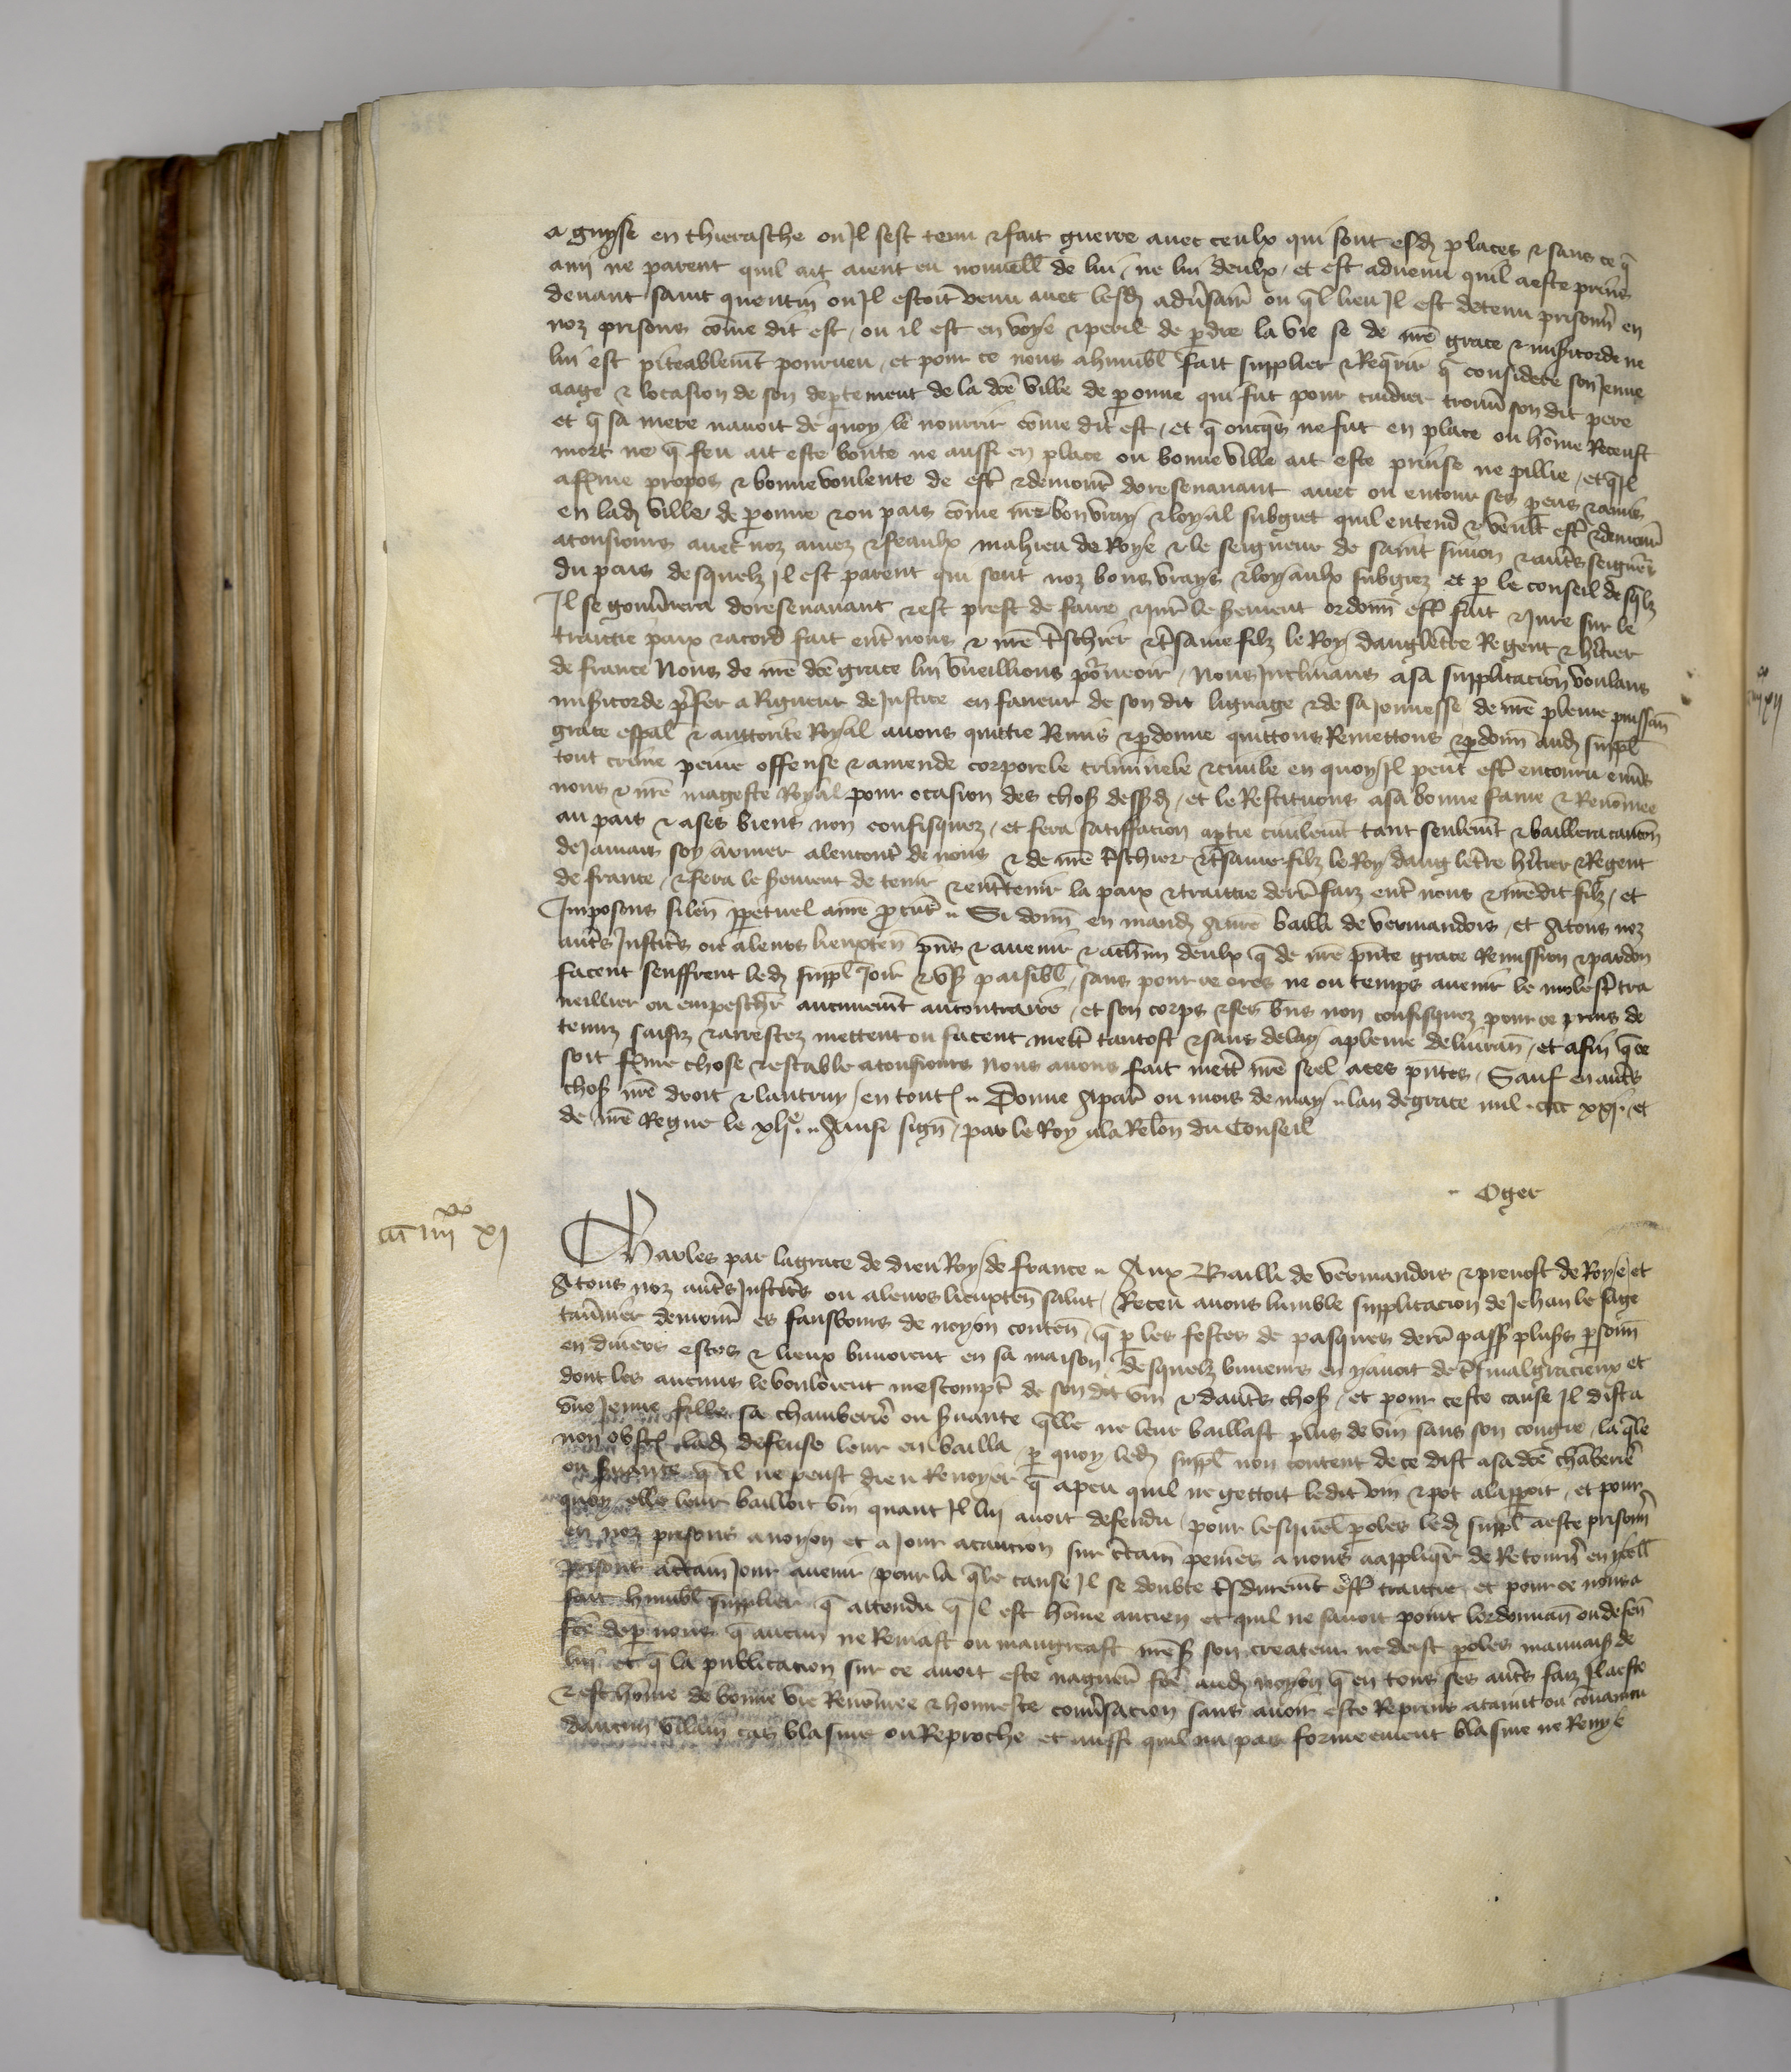 a guyse en thierasche ou Il sest tenu & fait guerre auec ceulx qui sont esd places & sans ce q̄
amj ne parent quil ait aient eu nouuell de lui ne lui deulx / et est aduenu quil a este prins
deuant saint quentin ou Il estoit venu auec lesd adu̾sair̄ ou ql lieu Il est detenu prisonn̄ en
noz prisons cōme dit est / ou il est en voye & peril de p̄dre la vie se de nrē grace & mis̾icorde ne
lui est piteablemt̄ pourueu / et pour ce nous a humbl̄ fait supplier & Reqūrir q̄ considere son Jeune
aage & locasion de son dep̄tement de la dcē ville de p̄onne qui fut pour cuidier trouu̾ son dit pere
et q̄ sa mere nauoit de quoy le nourrir cōme dit est / et q̄ oncq̄s ne fut en place ou hōme Receust
mort ne q̄ feu ait este boute ne aussi en place ou bonne ville ait este prinse ne pillie / et q̄ Il
a f̄me propos & bonne voulente de est̄r & demour̄ doresenauant auec ou entour ses p̄ens & amis
en lad ville de p̄onne & ou pais cōme nrē bon vray & loyal subgiet quil entend & veult est̄r & demour̄
atousiours auec noz amez & feaulx mahieu de Roye & le seigneur de saint simon & aut̄s seigneur̄
du pais desquelz Il est parent qui sont noz bons vrays & loyaulx subgiez et p̄ le conseil desq̄lz
Il se gouu̾nera doresenauant & est prest de faire & Jur̄ le s̾ement ordonn̄ est̄r fait & Jure sur le
traittie paix & acord fait ent̄ nous & nrē t̄schier & t̄same filz le Roy dangleterre Regent & h̄itier
de france Nous de nrē dcē grace lui vueillions po̾ueoir / Nous Inclinans a sa supplicacion voulans
mis̾icorde p̄fer̄ a Rigueur de Justice en faueur de son dit lignage & de sa Jeunesse de nrē pleine puissan̄
grace esp̄al & auctorite Royal auons quittie Remis & p̄donne quittons Remettons & p̄donn̄ aud suppl̄
tout crime peine offense & amende corporele criminele & ciuile en quoy Il peut est̄r encouru enu̾s
nous & nrē mageste Royal pour ocasion des chos̾ dess̾d / et le Restituons a sa bonne fame & Renōmee
au pais & a ses biens non confisquez / et fera satiffacion a p̄tie ciuilemt̄ tant seulemt̄ & baillera caucōn
de Jamais soy armer alencont̄r de nous & de nrē t̄schier & t̄same filz le Roy dangleterre h̄itier & Regent
de france / & fera le s̾ement de tenir & ent̄tenir la paix & traittie derr̄ faiz ent̄ nous & nredit filz / et
Imposons silen̄ p̄petuel a nrē p̄cur̄ .. Si donn̄ en mand A nrē bailli de vermandois / et A tous noz
aut̄s Justic̄s ou a leurs lieuxten̄ p̄ns & auenir & a ch̄un deulx q̄ de nrē p̄nte grace Remission & pardon
facent seuffrent led suppl̄ Joir & vs̾ paisibl̄ / sans pour ce ores ne ou temps auenir le molest̄ tra
ueillier ou empesch̄r aucunemt̄ au contraire / et son corps & ses bn̄s non confisquez pour ce prins de
tenuz saisiz & arrestez mettent ou facent mett̄ tantost & sans delay a pleine deliuran̄ / et afin q̄ ce
soit f̄me chose & estable atousiours Nous auons fait mett̄r nrē seel a ces p̄ntes / Sauf en aut̄s
chos̾ nrē droit & lautruy en tout̄ .. Donne A par̄ ou mois de may lan de grace mil cccc xxj / et
de nrē Regne le xlj.e .. Ainsi sign̄ / par le Roy a la Relōn du Conseil
.. Oger
cc iiij xx xj
Charles par la grace de dieu Roy de france .. Aux Bailli de vermandois & preuost de Roye et
A tous noz aut̄s Justic̄s ou a leurs lieuxten̄ salut / Receu auons lumble supplicacion de Jehan le sage
tau̾nier demour̄ es fausbours de noyon conten̄ / q̄ p̄ les festes de pasques derr̄ pass̾ plus̾s p̄sonn̄
en diuers escos & lieux buuoient en sa maison / desquelz buueurs en y auoit de t̄smalgracieux et
dont les aucuns le vouloient mescompt̄ de son dit vin & daut̄s chos̾ / et pour ceste cause Il dist a
vne Jeune fille sa chamberier̄ ou s̾uante q̄lle ne leur baillast plus de vin sans son congie / la q̄le
non obst̄ lad defense leur en bailla / p̄ quoy led suppl̄ non content de ce dist a sa dcē chāberier̄
ou s̾uante q̄ Il ne peust dieu Renoyer q̄ a peu quil ne gettoit ledit vin & pot a lap̄poit / et pour
quoy elle leur bailloit vin quant Il lui auoit defendu / pour lesquel p̄oles led suppl̄ a este prisonn̄
en noz prisons a noyon et a Jour a caucion sur c̄tain̄ peines a nous a appliqr̄ de Retourn̄ en ycell̄
prisons a c̄tain Jour auenir / pour la q̄le cause Il se doubte t̄sdurement est̄r traittie / et pour ce nous a
fait humbl̄ supplier q̄ attendu q̄ Il est hōme ancien et quil ne sauoit point lordonnan̄ ou defen̄
fcē de p̄ nous q̄ aucun ne Reniast ou maugreast nrē s̾ son createur ne deist p̄oles mauuais̾ de
lui et q̄ la publicacion sur ce auoit este naguer̄ fcē aud noyon q̄ en tous ses aut̄s faiz Il a este
& est hōme de bonne vie Renōmee & honneste conu̾sacion sans auoir este Reprins ataint ou conuaincu
daucun vilain cas blasme ou Reproche et aussi quil na pas formeement blasme ne Renye